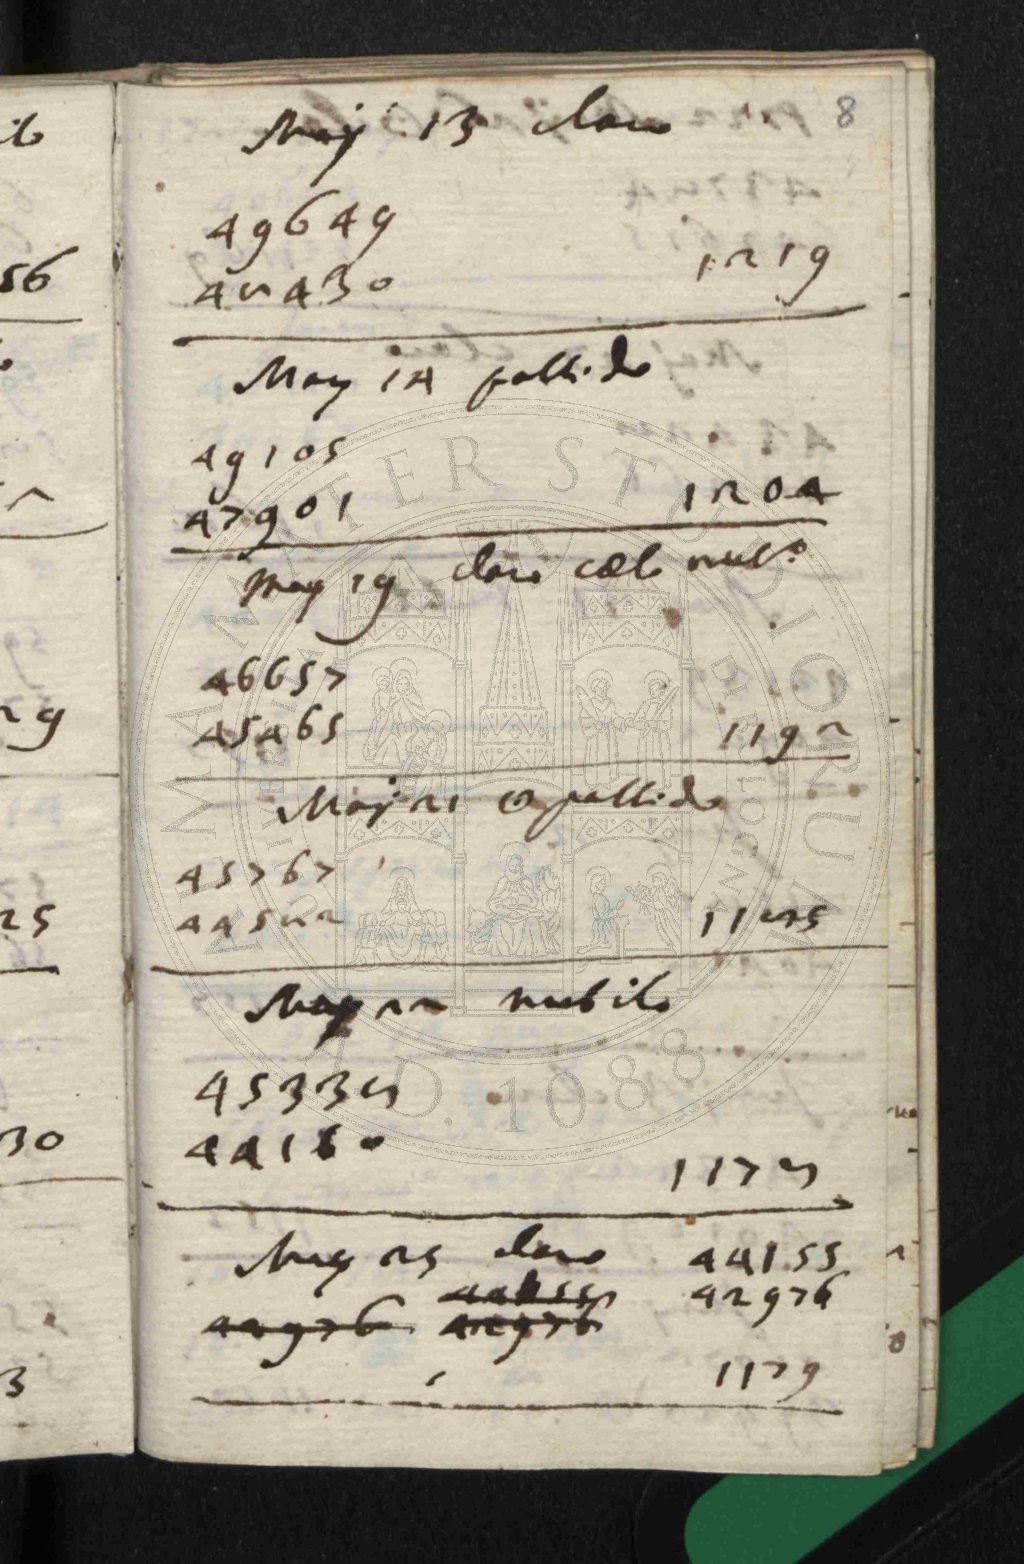 8
Maij 13 claro
49649
48430 1219
May 14 pallido
49105
47901 1204
May 19 claro cælo nub.o
46657
45465 1192
Maij 21 ☉ pallido
45767
44582 1185
May 22 nubilo
45338
44160 1178
May 25 claro 44155
44155 42976
42976 42976
1179
56
29
25
30
3
ALMA MATER STUDIORUM
A.D. 1088